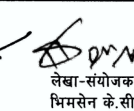 लेखा-संयोजक
भिमसेन के.सी